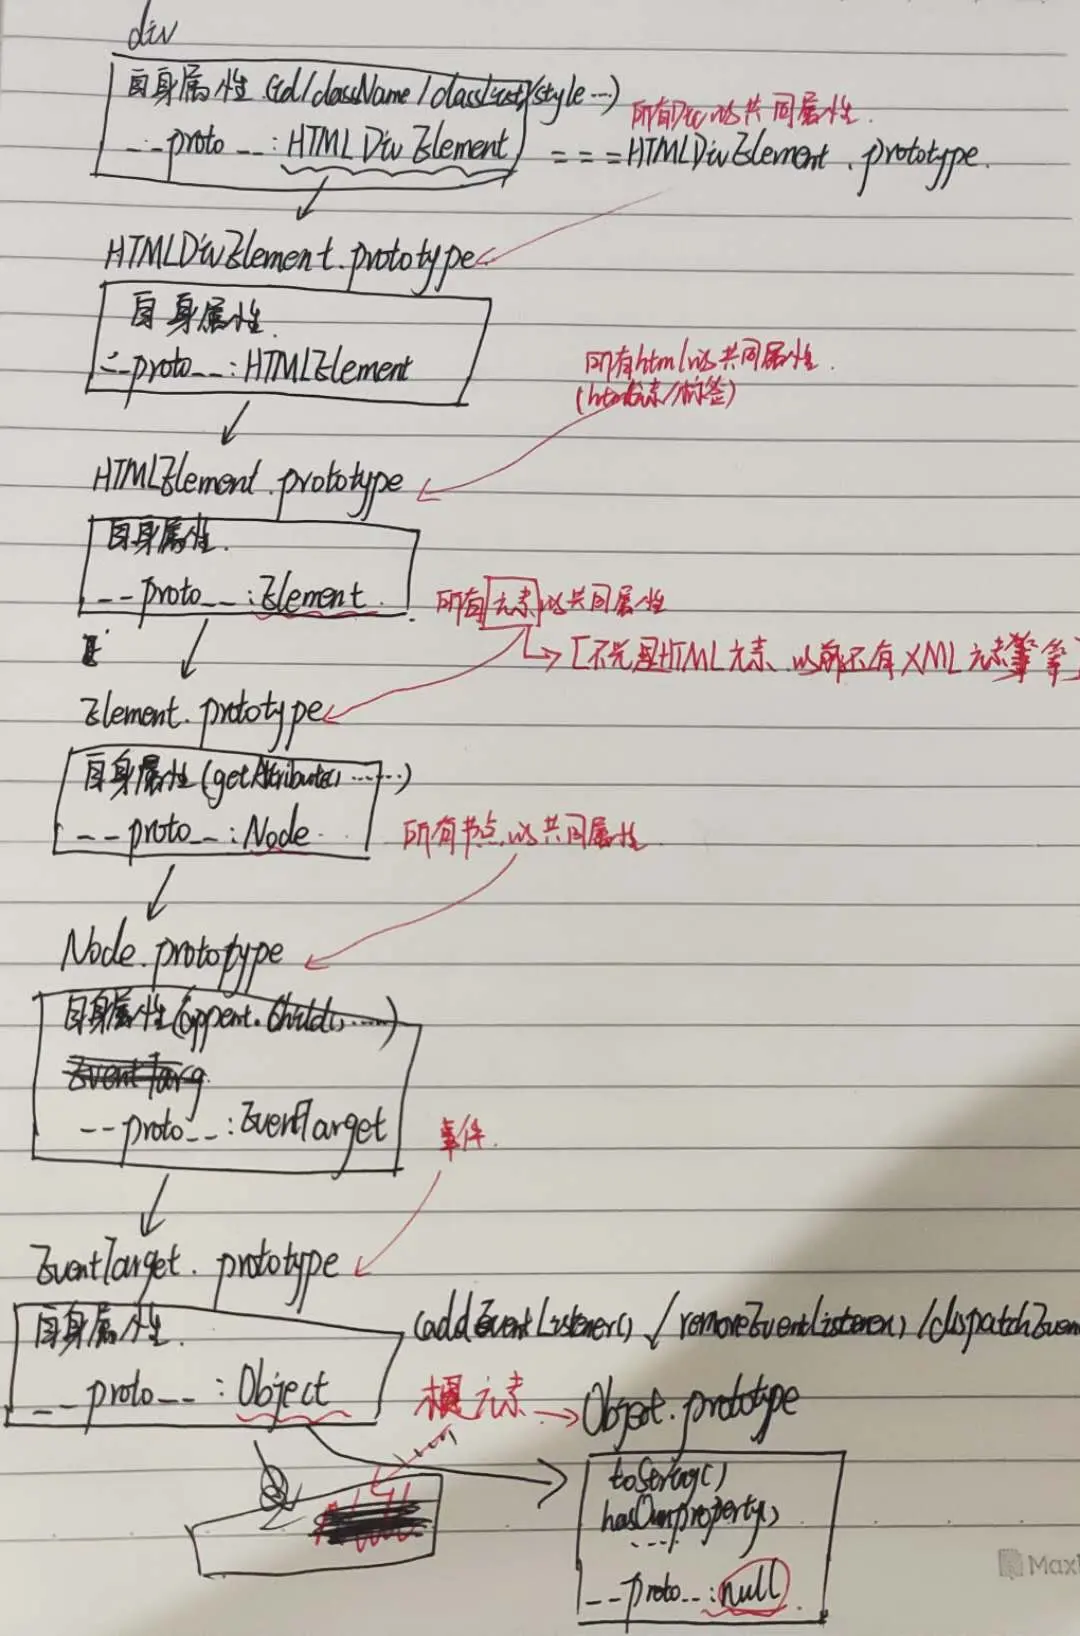 div
自身属性 (id/className/classList/style...)
所有Div的共同属性.
__proto__:HTMLDivElement
===HTMLDivElement.prototype.
HTMLDivElement.prototype
自身属性.
__proto__:HTMLElement
所有html的共同属性.
(html元素/标签)
HTMLElement.prototype
自身属性.
__proto__:Element.
所有元素的共同属性
[不光是HTML元素、以前还有XML元素 等]
Element.prototype
自身属性(getAttribute(), ......)
__proto__:Node.
所有节点的共同属性
Node.prototype
自身属性(appent.Child(), ......)
EventTarg
__proto__:EventTarget
事件.
EventTarget.prototype
自身属性.
(addEventListener()/removeEventListener()/dispatchEven
__proto__:Object
根元素→Object.prototype
toString()
hasOwnproperty()
....
__proto__:null
Max